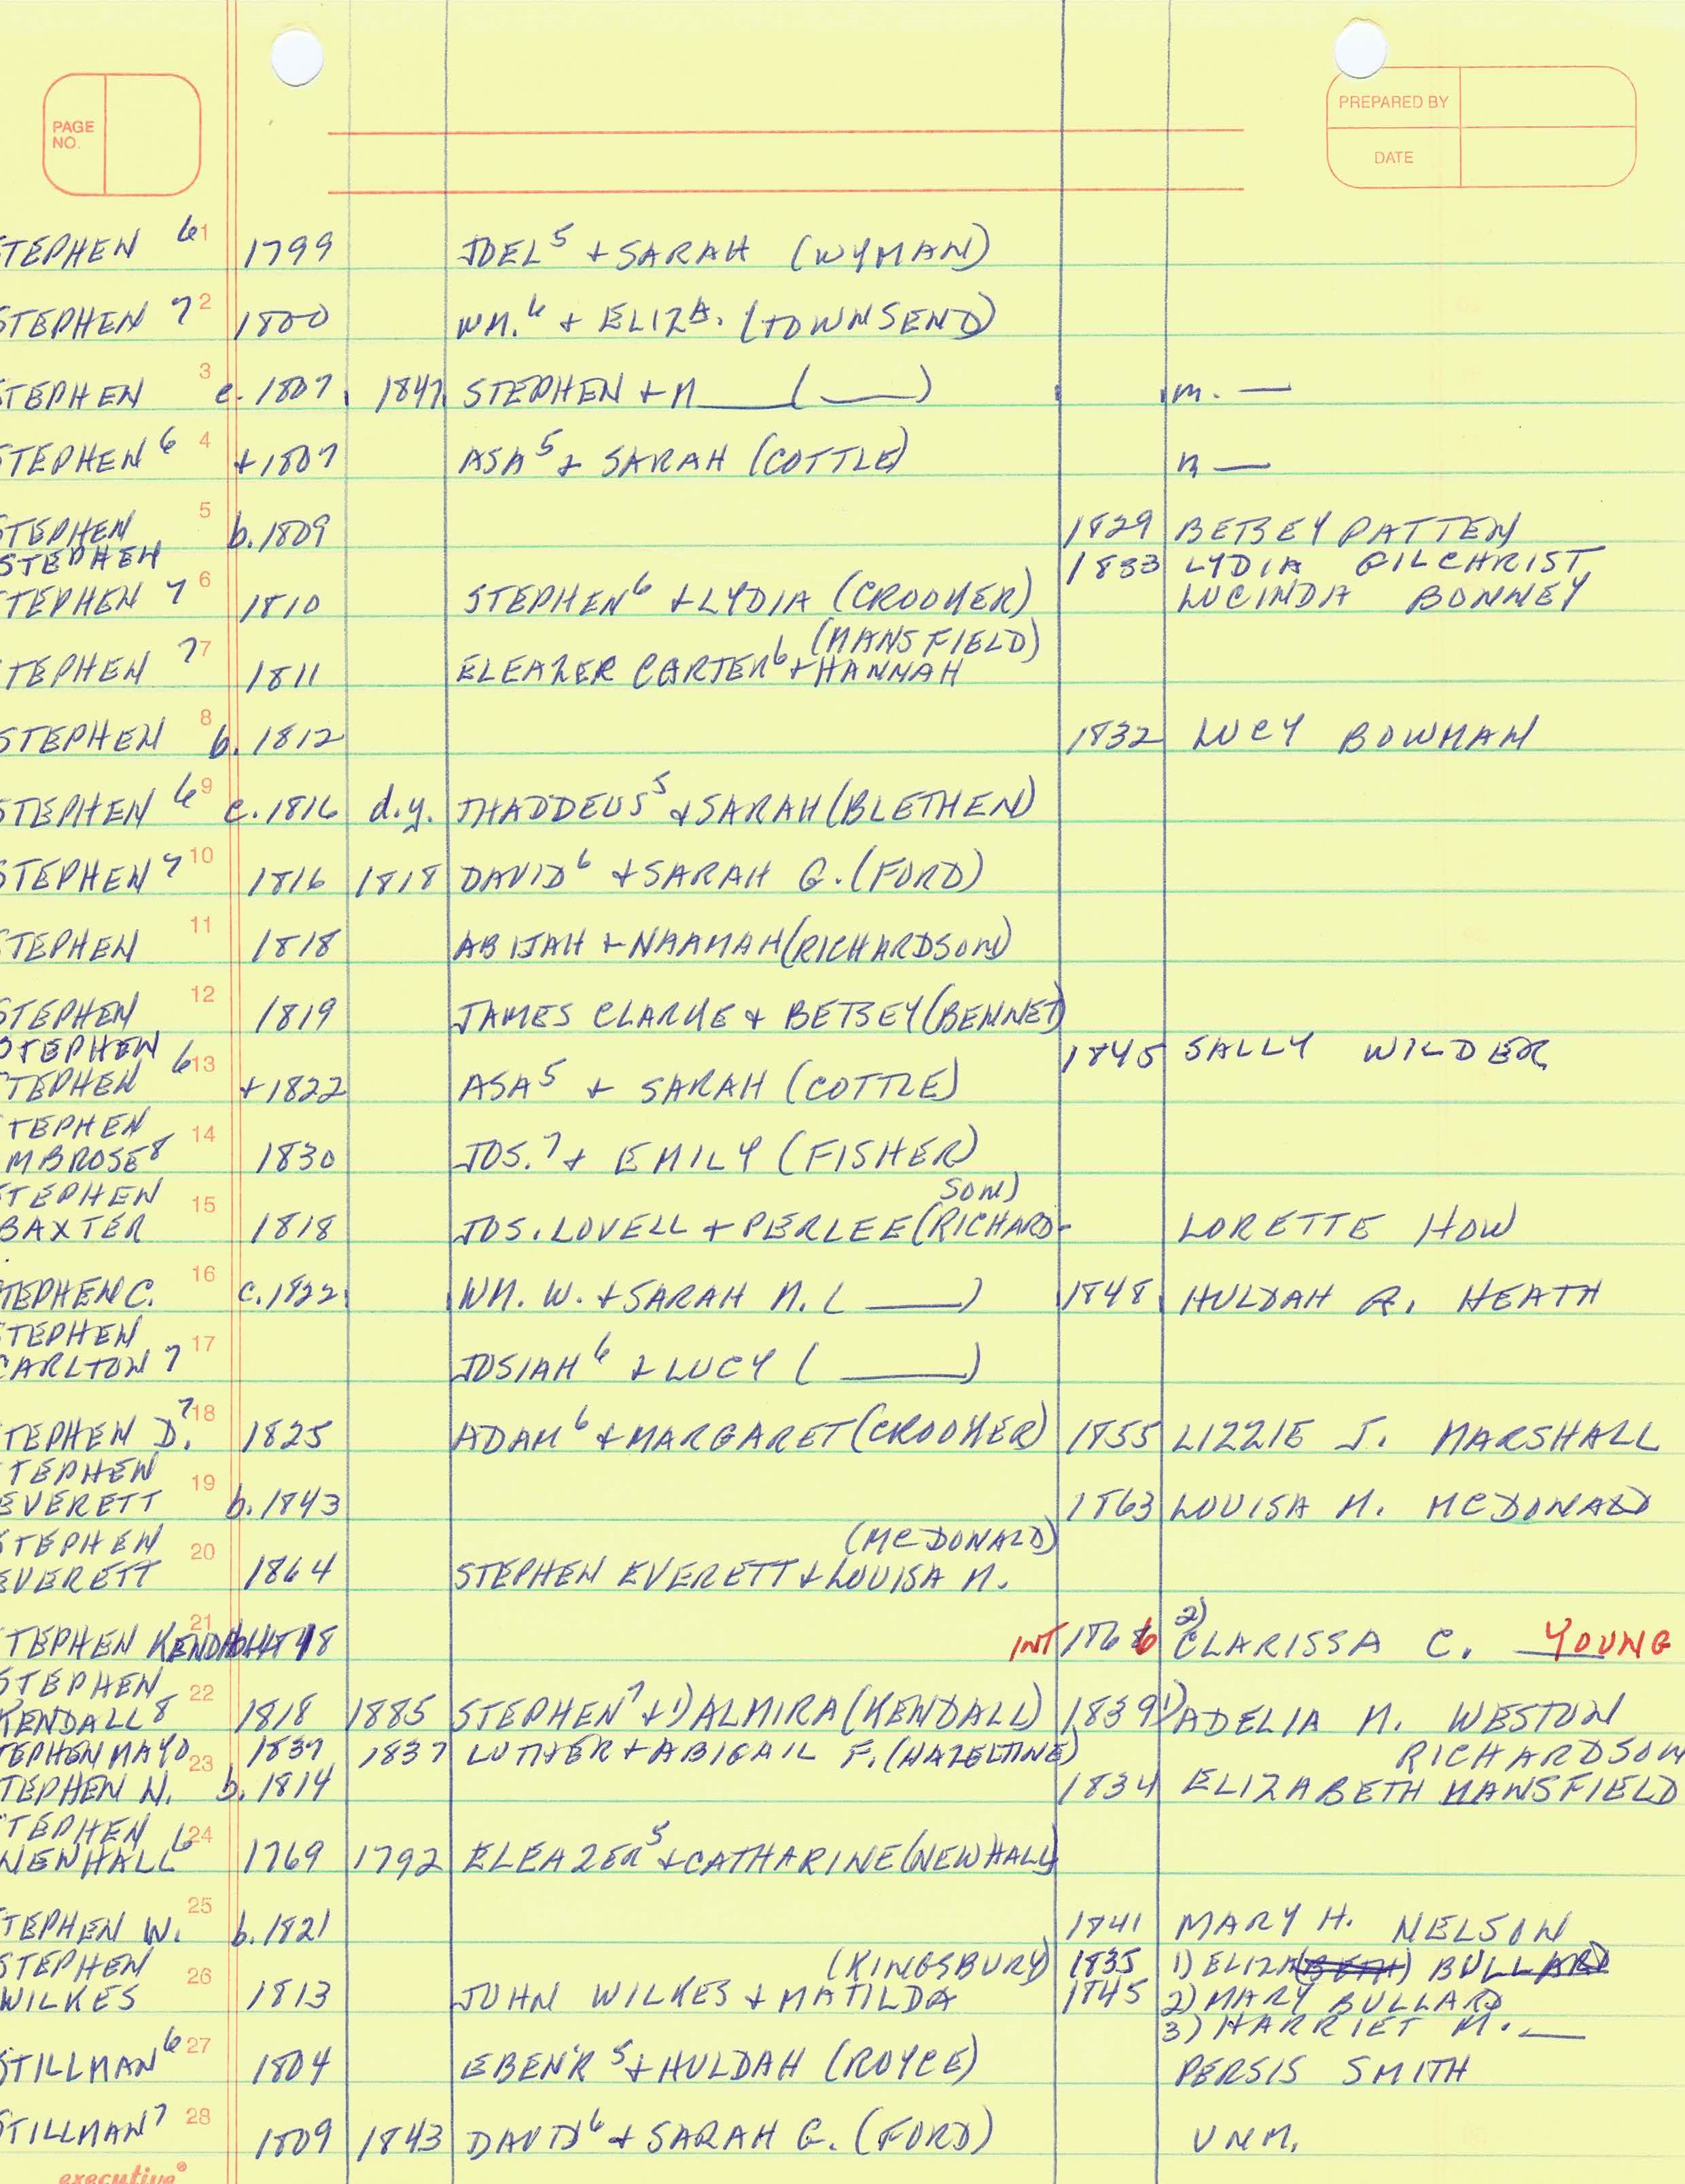 PAGE NO.
PREPARED BY
DATE
TEPHEN 6 1 1799 JOEL5 + SARAH (WYMAN)
STEPHEN 7 2 1800 WM.6 + ELIZA. (TOWNSEND)
STEPHEN 3 c. 1807 1847 STEPHEN + M____ (____) m. —
STEPHEN 6 4 +1807 ASA5 + SARAH (COTTLE) m —
STEPHEN 5 b. 1809 1829 BETSEY PATTEN
STEPHEN 1833 LYDIA GILCHRIST
TEPHEN 7 6 1810 STEPHEN6 + LYDIA (CROOKER) LUCINDA BONNEY
(MANSFIELD)
TEPHEN 7 7 1811 ELEAZER CARTER6 + HANNAH
STEPHEN 8 b. 1812 1832 LUCY BOWMAN
STEPHEN 6 9 c. 1816 d.y. THADDEUS5 + SARAH (BLETHEN)
STEPHEN 7 10 1816 1818 DAVID6 + SARAH G. (FORD)
STEPHEN 11 1818 ABIJAH + NAAMAH (RICHARDSON)
STEPHEN 12 1819 JAMES CLARKE + BETSEY (BENNET)
STEPHEN 1845 SALLY WILDER
TEPHEN 6 13 +1822 ASA5 + SARAH (COTTLE)
TEPHEN
MBROSE8 14 1830 JOS.7 + EMILY (FISHER)
TEPHEN SON)
BAXTER 15 1818 JOS. LOVELL + PERLEE (RICHARD- LORETTE HOW
TEPHEN C. 16 c. 1822 WM. W. + SARAH M. (____) 1848 HULDAH A. HEATH
STEPHEN
CARLTON 7 17 JOSIAH6 + LUCY (____)
TEPHEN D.7 18 1825 ADAM6 + MARGARET (CROOKER) 1855 LIZZIE J. MARSHALL
TEPHEN
EVERETT 19 b. 1843 1863 LOUISA M. MCDONALD
STEPHEN (MCDONALD)
EVERETT 20 1864 STEPHEN EVERETT + LOUISA M.
TEPHEN KENDALL 21 18 INT 1866 2) CLARISSA C. YOUNG
STEPHEN
KENDALL8 22 1818 1885 STEPHEN7 + 1) ALMIRA (KENDALL) 1839 1) ADELIA M. WESTON
TEPHEN MAYO 23 1837 1837 LUTHER + ABIGAIL F. (HAZELTINE) RICHARDSON
TEPHEN N. b. 1814 1834 ELIZABETH MANSFIELD
TEPHEN
NEWHALL6 24 1769 1792 ELEAZER5 + CATHARINE (NEWHALL)
TEPHEN W. 25 b. 1821 1841 MARY H. NELSON
STEPHEN (KINGSBURY) 1835 1) ELIZA(BETH) BULLARD
WILKES 26 1813 JOHN WILKES + MATILDA 1845 2) MARY BULLARD
3) HARRIET M. —
STILLMAN6 27 1804 EBEN'R5 + HULDAH (ROYCE) PERSIS SMITH
STILLMAN7 28 1809 1843 DAVID6 + SARAH G. (FORD) UNM.
executive®